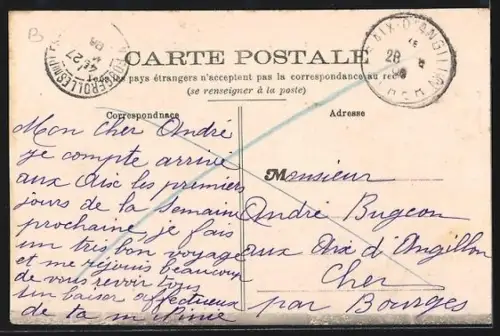 B
FOUGEROLLES
27
CARTE POSTALE
AIX-D'ANGILLON
28
Tous les pays étrangers n'acceptent pas la correspondance au recto
(se renseigner à la poste)
Correspondnace
Adresse
Mon cher André
je compte arrivé
aux Aix les premiers
jours de la semaine
prochaine, je fais
un tres bon voyage
et me réjouis beaucoup
de vous revoir tous
un baiser affectueux
de ta
Monsieur
André Bugeon
aux Aix d'Angillon
Cher
par Bourges